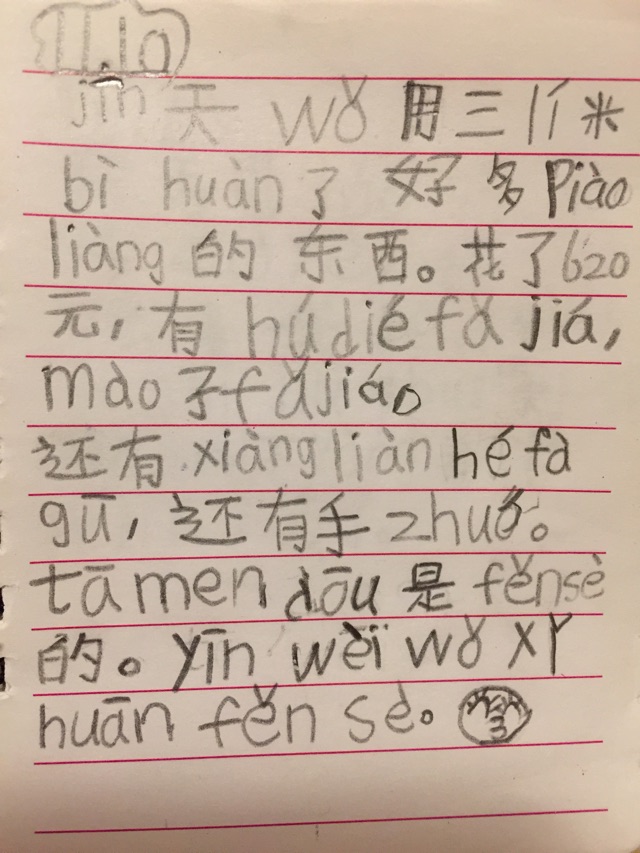 11.10
jīn 天 wǒ 用 三 lí 米
bì huàn 了 好 多 Piào
liàng 的 东 西。花 了 620
元，有 hú dié fǎ jiá,
mào 子 fǎ jiá。
还 有 xiàng liàn hé fà
gū，还 有 手 zhuó。
tā men dōu 是 fěn sè
的。yīn wèi wǒ xǐ
huān fěn sè。